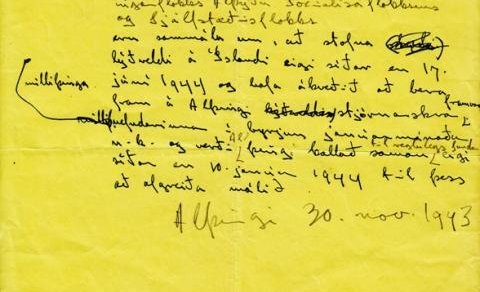 og Sjálfstæðisflokks
eru sammála um, að stofna
lýðveldi á Íslandi eigi síðar en 17.
júní 1944 og hafa ákveðið að bera
milliþinga.
fram á Alþingi stjórnarskrá
í byrjun janúarmánaðar
n.k. og verði Alþingi kallað saman eigi
síðar en 10. janúar 1944 til þess
að afgreiða málið
Alþingi 30. nov. 1943